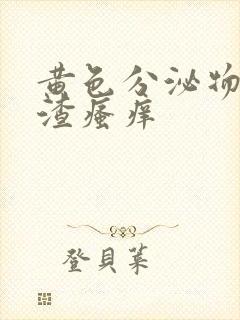 黄色分泌物
渣瘙痒
登貝葉